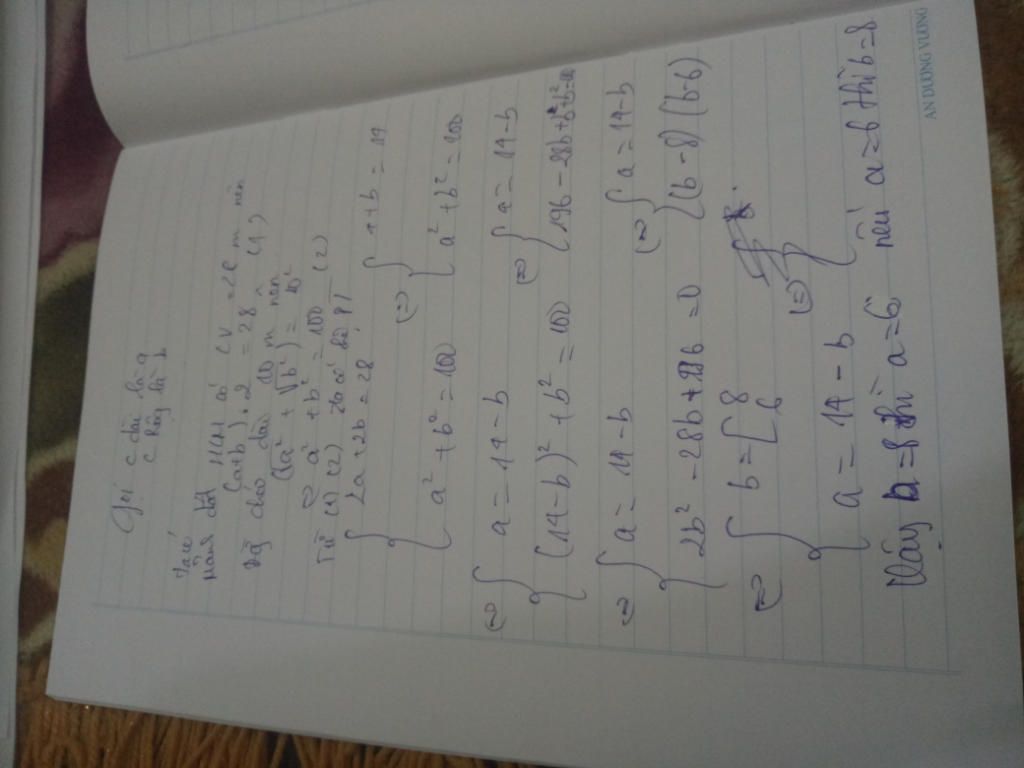 Gọi c dài là a
c rộng là b
Ta có
mảnh đất HCN có CV = 28 m nên
(a+b).2 = 28 (1)
chéo dài 10 m nên
(√a² + √b²) = 10²
⇔ a² + b² = 100 (2)
Từ (1) (2) ta có hệ PT
{ 2a+2b = 28 (=) { a+b = 14
{ a² + b² = 100 { a² + b² = 100
(=) { a = 14-b (=) { a = 14-b
{ (14-b)² + b² = 100 { 196 - 28b + b² + b² = 100
(=) { a = 14-b (=) { a = 14-b
{ 2b² - 28b + 96 = 0 { (b-8) (b-6)
(=) { b = [ 8 6 (=) {
{ a = 14 - b
Vậy b=8 thì a=6 nếu a=6 thì b=8
AN DƯƠNG VƯƠNG